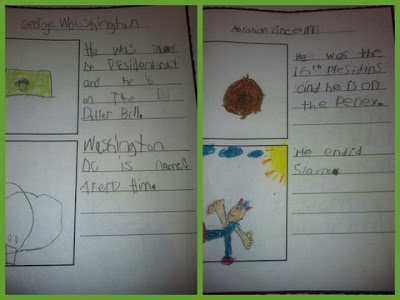 George Wawshington
He was
1st Presidennat
and he is
on The D1
Daller Bill.
Washington
DC is named
afert Him.
Abraham Lincelnn
He was the
16th Presidins
and he is on
the Penex.
He endid
Slarre